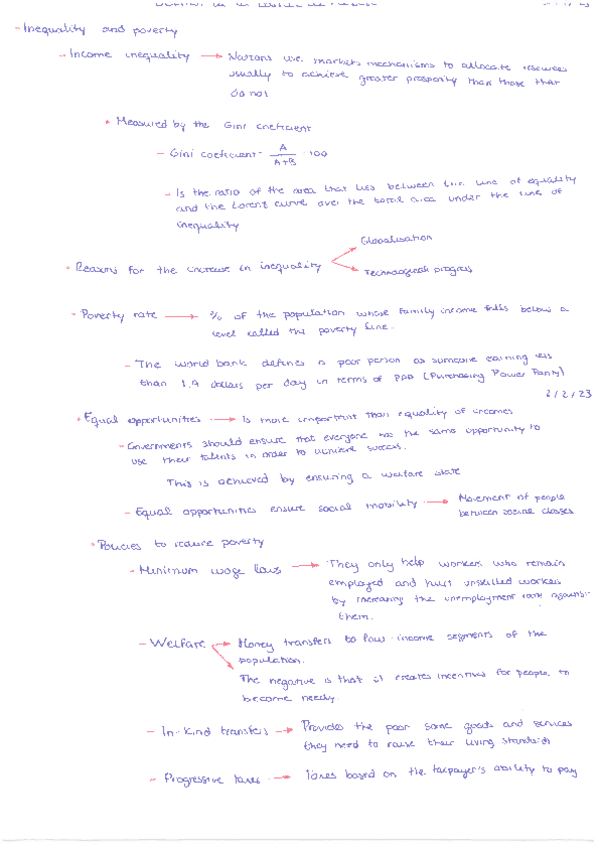 - Inequality and poverty
- Income inequality → Nations use markets mechanisms to allocate resources
usually to achieve greater prosperity than those that
do not
• Measured by the Gini coeficient
- Gini coeficient = A / A+B · 100
- Is the ratio of the area that lies between the line of equality
and the Lorent curve over the total area under the line of
inequality
• Reasons for the increase in inequality → Globalisation
→ Technological progress
- Poverty rate → % of the population whose family income falls below a
level called the poverty line.
- The world bank defines a poor person as someone earning less
than 1.9 dollars per day in terms of PPP (Purchasing Power Parity)
2/2/23
• Equal opportunities → Is more important than equality of incomes
- Governments should ensure that everyone has the same opportunity to
use their talents in order to achieve success.
This is achieved by ensuring a welfare state
- Equal opportunities ensure social mobility → Movement of people
between social classes
• Policies to reduce poverty
- Minimum wage laws → They only help workers who remain
employed and hurt unskilled workers
by increasing the unemployment rate
them.
- Welfare → Money transfers to low-income segments of the
population.
→ The negative is that it creates incentives for people to
become needy.
- In-kind transfers → Provides the poor some goods and services
they need to raise their living standards
- Progressive taxes → Taxes based on the taxpayer's ability to pay